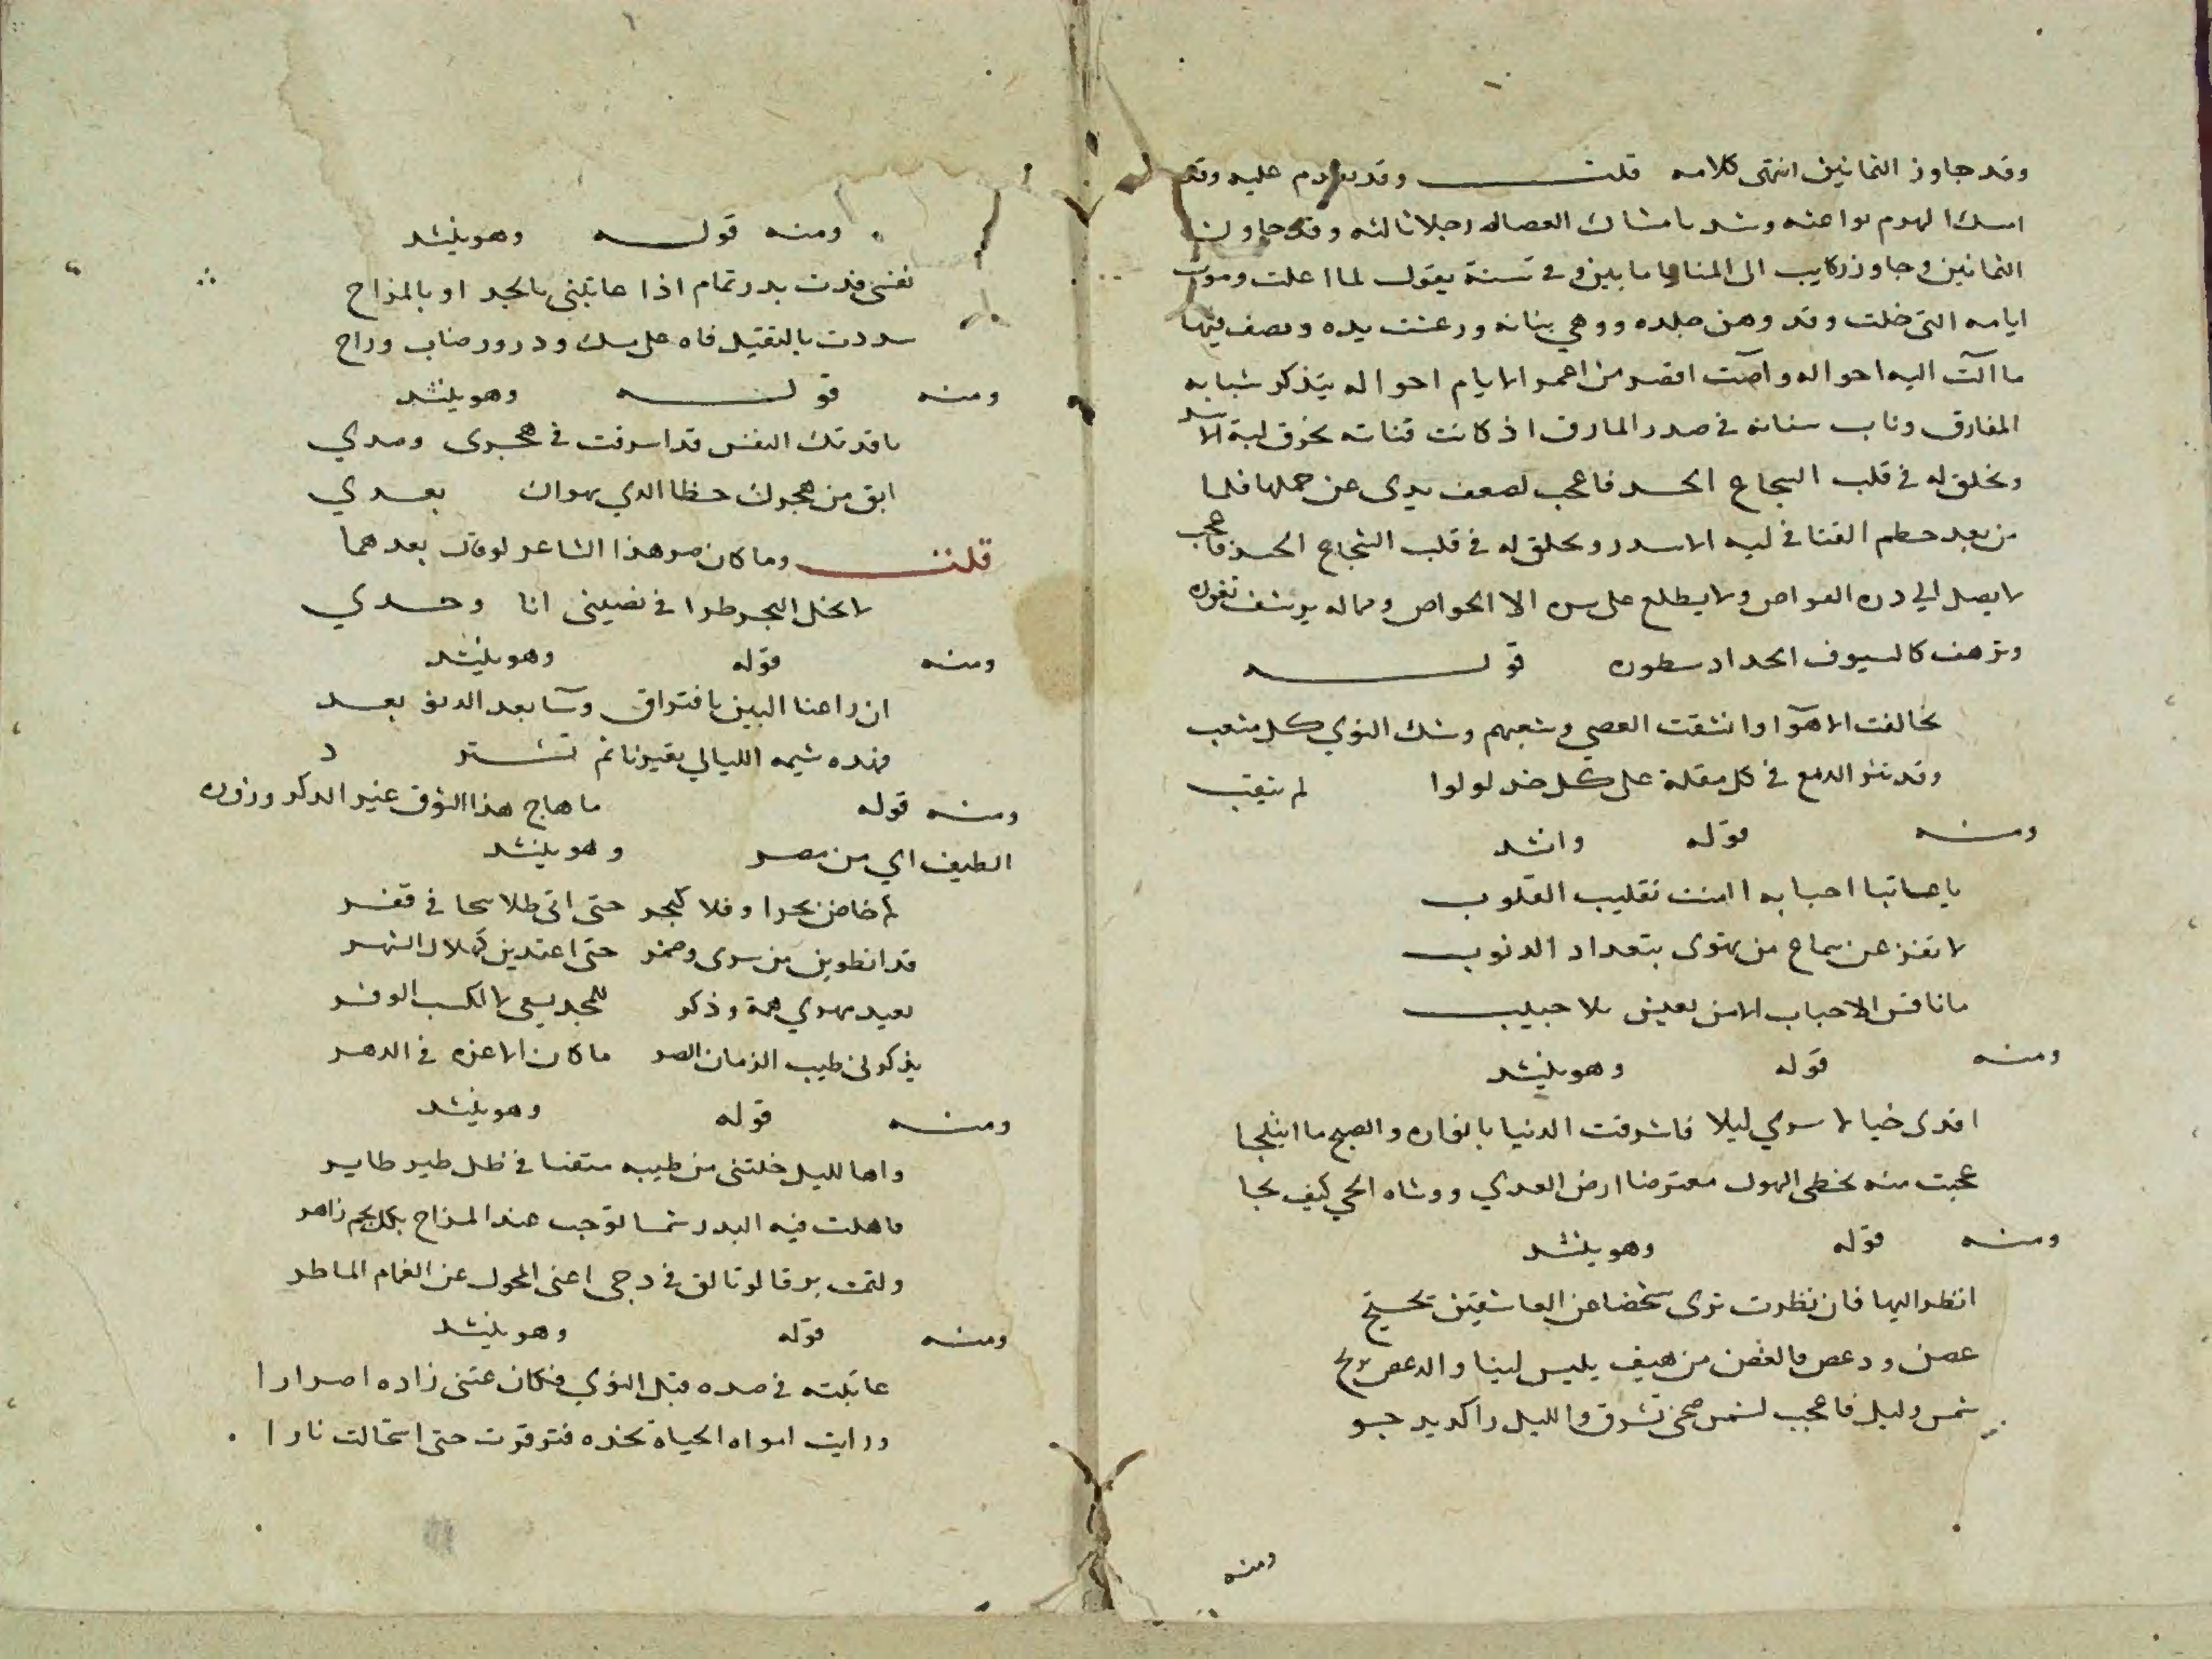 وقد جاوز الثمانين انتهى كلامه قلت وقد عليه وقد
امسك الهرم بواعثه وشد بامساك العصا له رجلا ثالثه وقد حاول
الثمانين وجاوز ركايب الى المنايا ما بين وفي سنة يقول لما اعلت ومرت
ايامه التي خلت وقد وهن جلده ووهي بنانه ورعشت يده ونصف فيها
ما آلت اليه احواله وآضت اقصر من اعمر الايام احواله يتذكر شبابه
المفارق وناب سنانه في صدر المارق اذ كانت قناته تخرق لبة الاسد
وتخلق له في قلب الشجاع الحسد فاعجب لضعف يدي عن حملها قلما
من بعد حطم القنا في لبه الاسد وتخلق له في قلب الشجاع الحسد فاعجب
لا يصل الي دره الغواص ولا يطلع على سره الا الخواص ومما له يرشف ثغوره
وترهف كالسيوف الحداد سطوره قوله
تخالفت الاهوآ وانشقت العصي وشعبهم وشك النوي كل مشعب
وقد نثر الدمع في كل مقلة على كل خد لولوا لم يثقب
ومنه قوله وانشد
يا عاتبا احبابه اامنت تقليب القلوب
لا تفتر عن سماح من تهوى بتعداد الذنوب
ما ناقش الاحباب الا من يعيش بلا حبيب
ومنه قوله وهو ينشد
افدى خيالا سري ليلا فاشرقت الدنيا بانواره والصبح ما انبلجا
عجبت منه تخطى الهول معترضا ارض العدي ووشاه الحي كيف نجا
ومنه قوله وهو ينشد
انظر اليها فان نظرت ترى شخصا عن العاشقين
غصن ودعص فالغصن من هيف يميس لينا والدعص يرتج
شمس وليل فاعجب لشمس ضحى تشرق والليل راكد يدجو
ومنه
ومنه قوله وهو ينشد
نفسي فدت بدر تمام اذا عاتبني بالجد او بالمزاح
سددت بالتقبيل فاه على مسك ودر ورضاب وراح
ومنه قوله وهو ينشد
يا فدتك النفس قد اسرفت في هجرى وصدي
ابق من هجرك حظا للذي يهواك بعدي
قلت وما كان ضر هذا الشاعر لو قال بعدهما
لا تخل الهجر طرا في نصيبي انا وحدي
ومنه قوله وهو ينشد
ان راعنا البين بافتراق وسآ بعد الدنو بعد
فهذه شيمه الليالي يعيرنا ثم تسترد
ومنه قوله ما هاج هذا الشوق غير الذكر وزوره
الطيف اي من مصر وهو ينشد
كم خاض بحرا وفلا كبحر حتى اتى طلايحا في قفر
قد انطوين من سرى وضمر حتى اغتدين كهلال الشهر
بعيد مهوي همة وذكر للمجد يسعى لا لكسب الوفر
يذكرني طيب الزمان النضر ما كان الا غره في الدهر
ومنه قوله وهو ينشد
واها لليل خلتني من طيبه متفنا في ظل طير طاير
ما هلت فيه البدر شمسا توجت عند المزاح بكل نجم زاهر
ولثمت برقا لو تالق في دجي اغنى المحول عن الغمام الماطر
ومنه قوله وهو ينشد
عاتبته في صده قبل النوي فكان عتبي زاده اصرارا
ورايت امواه الحياة بخده فترقرقت حتى استحالت نارا